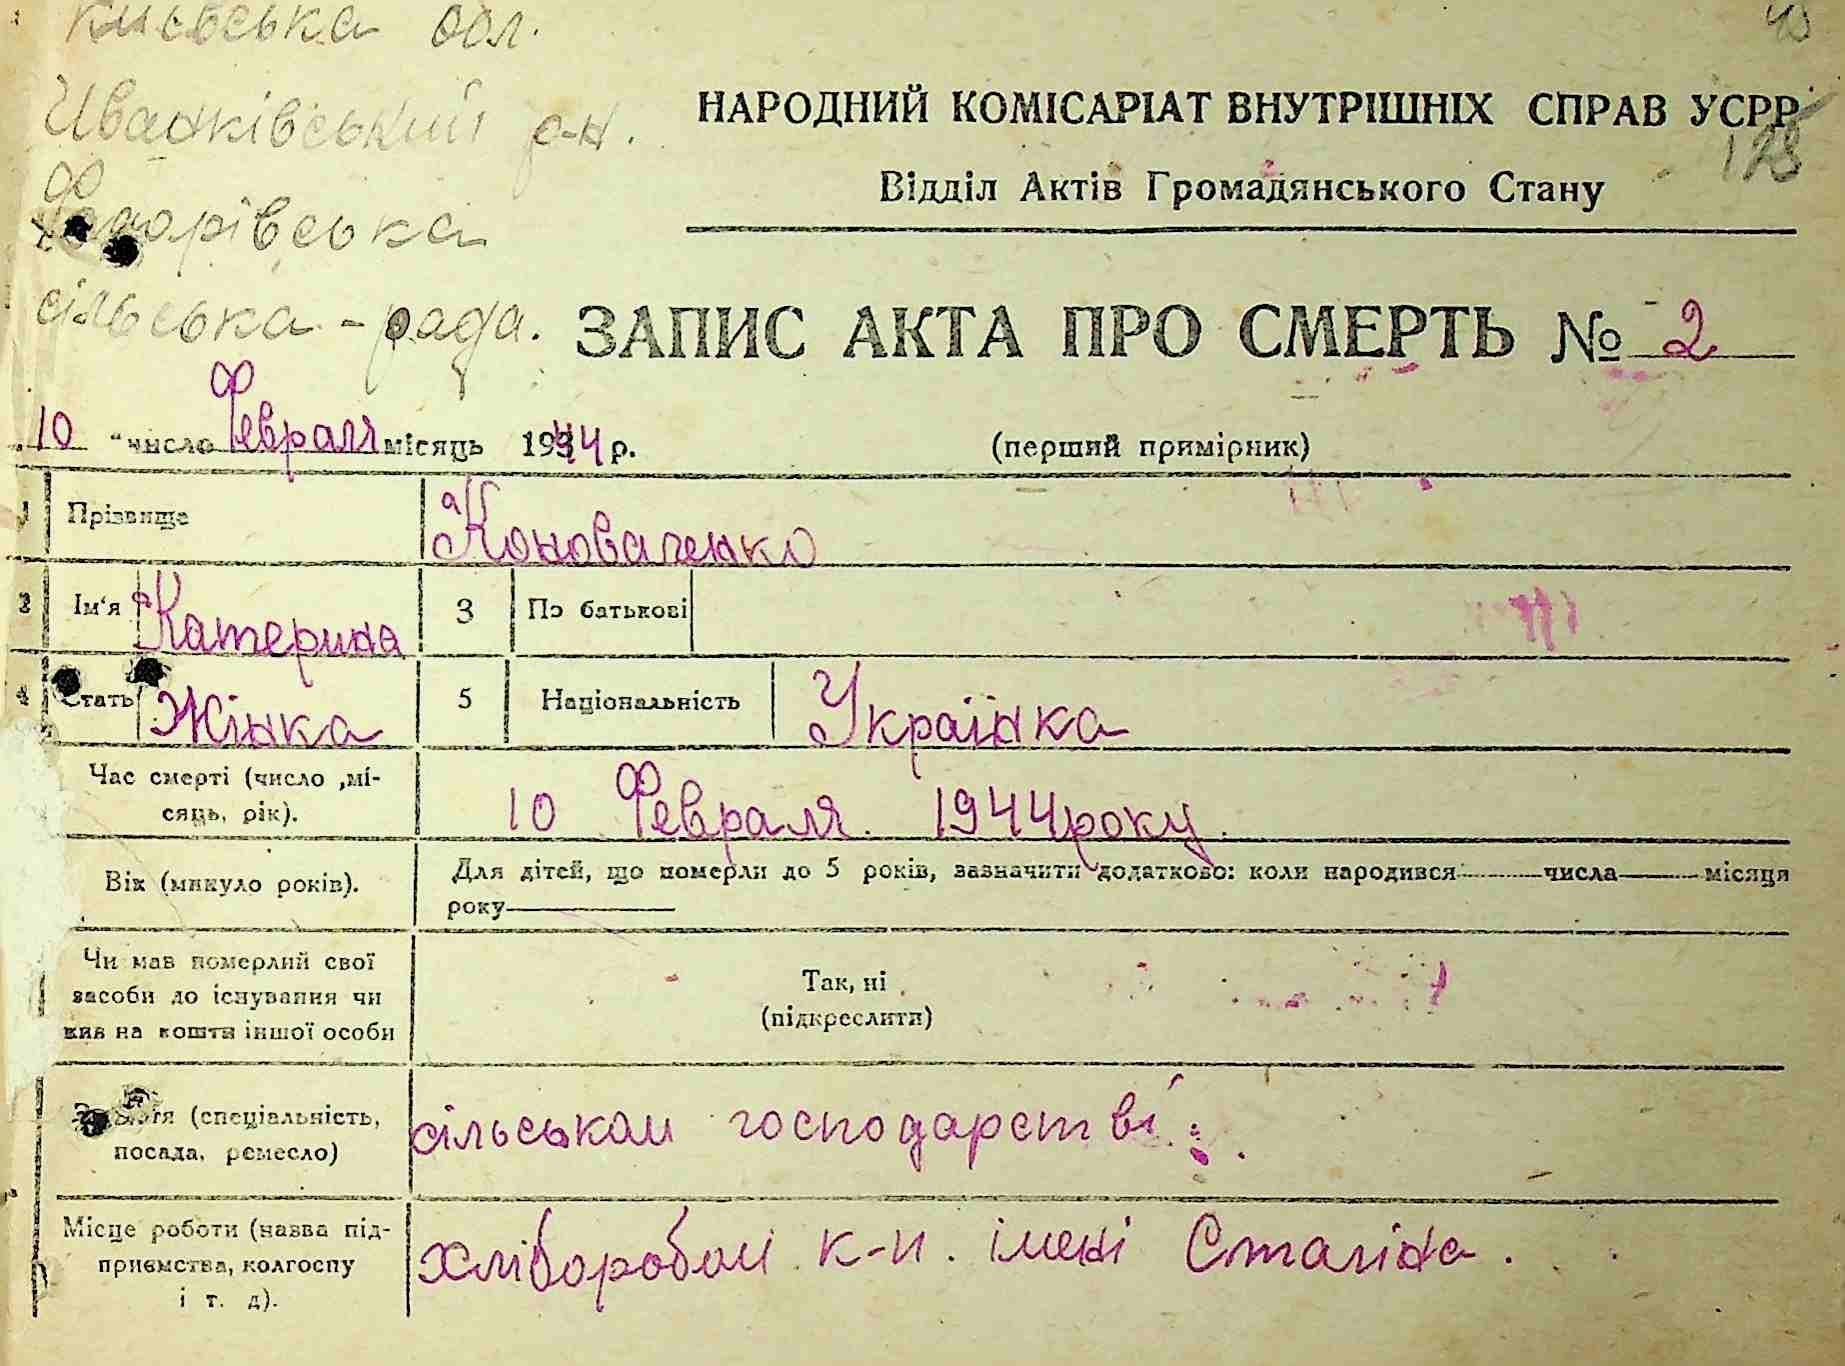 Київська обл.
Иванківський р-н.
Федорівська
сільська-рада.
43
128
НАРОДНИЙ КОМІСАРІАТ ВНУТРІШНІХ СПРАВ УСРР
Відділ Актів Громадянського Стану
ЗАПИС АКТА ПРО СМЕРТЬ № 2
"10 " число Февраля місяць 1944 р. (перший примірник)
1 Прізвище Коноваленко
2 Ім'я Катерина 3 По батькові
4 Стать Жінка 5 Національність Українка
Час смерті (число ,мі-
сяць, рік). 10 Февраля. 1944 року.
Вік (минуло років). Для дітей, що померли до 5 років, зазначити додатково: коли народився числа місяця
року
Чи мав померлий свої
засоби до існування чи
жив на кошти іншої особи
Так, ні
(підкреслити)
Заняття (спеціальність,
посада, ремесло) сільськом господарстві.
Місце роботи (назва під-
приємства, колгоспу
і т. д). хліборобом к-п. імені Сталіна.